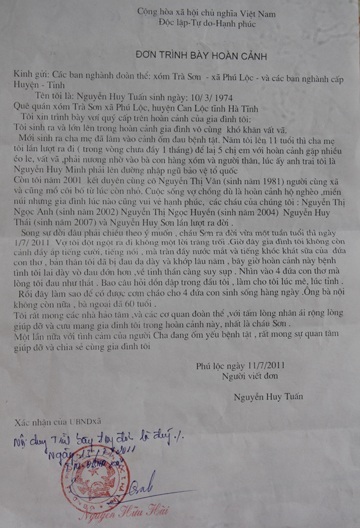 Cộng hòa xã hội chủ nghĩa Việt Nam
Độc lập-Tự do-Hạnh phúc
ĐƠN TRÌNH BÀY HOÀN CẢNH
Kính gửi: Các ban nghành đoàn thể: xóm Trà Sơn - xã Phú Lộc - và các ban nghành cấp
Huyện - Tỉnh
Tên tôi là: Nguyễn Huy Tuấn sinh ngày: 10/ 3/ 1974
Quê quán xóm Trà Sơn xã Phú Lộc, huyện Can Lộc tỉnh Hà Tĩnh
Tôi xin trình bày với quý cấp trên hoàn cảnh của gia đình tôi:
Tôi sinh ra và lớn lên trong hoàn cảnh gia đình vô cùng khó khăn vất vã.
Mới sinh ra cha mẹ đã lâm vào cảnh ốm đau bệnh tật. Năm tôi lên 11 tuổi thì cha mẹ
tôi lần lượt ra đi ( trong vòng chưa đầy 1 tháng) để lại 5 chị em với hoàn cảnh gặp nhiều
éo le, vất vã ,phải nương nhờ vào bà con hàng xóm và người thân, lúc ấy anh trai tôi là
Nguyễn Huy Minh phải lên đường nhập ngũ bảo vệ tổ quốc
Còn tôi năm 2001 kết duyên cùng cô Nguyễn Thị Vân (sinh năm 1981) người cùng xã
và cũng mồ côi bố từ lúc còn nhỏ. Cuộc sống vợ chồng dù là hoàn cảnh hộ nghèo ,miền
núi nhưng gia đình lúc nào cũng vui vẻ hạnh phúc, các cháu của chúng tôi : Nguyễn Thị
Ngọc Anh (sinh năm 2002) Nguyễn Thị Ngọc Huyền (sinh năm 2004) Nguyễn Huy
Thái (sinh năm 2007) và Nguyễn Huy Sơn lần lượt ra đời .
Song sự đời đâu phải chiều theo ý muốn , cháu Sơn ra đời vừa một tuần tuổi thì ngày
1/7/ 2011 Vợ tôi đột ngột ra đi không một lời trăng trối .Giờ đây gia đình tôi không còn
cảnh đầy áp tiếng cười, tiếng nói , mà tràn đầy nước mắt và tiếng khóc khát sữa của đứa
con thơ , bản thân tôi đã bị đau dạ dày và khớp lâu năm , bây giờ hoàn cảnh này bệnh
tình tôi lại đầy vò đau đớn hơn ,về tinh thần càng suy sụp . Nhìn vào 4 đứa con thơ mà
lòng tôi đau như thắt . Bao câu hỏi dồn dập trong đầu tôi , làm cho tôi lúc mê, lúc tỉnh .
Rồi đây làm sao để có được cơm cháo cho 4 đứa con sinh sống hàng ngày .Ông bà nội
không còn nữa , bà ngoại đã 60 tuổi .
Tôi rất mong các nhà hảo tâm ,và các cơ quan đoàn thể ,với tấm lòng nhân ái rộng lòng
giúp đỡ và cưu mang gia đình tôi trong hoàn cảnh này, nhất là cháu Sơn .
Một lần nữa với tình cảm của người Cha đang ốm yếu bệnh tật , rất mong sự quan tâm
giúp đỡ và chia sẻ cùng gia đình tôi
Phú lộc ngày 11/7/2011
Người viết đơn
Nguyễn Huy Tuấn
Xác nhận của UBND xã
Nội dung trình bày
Ngày
Nguyễn Hữu Hải